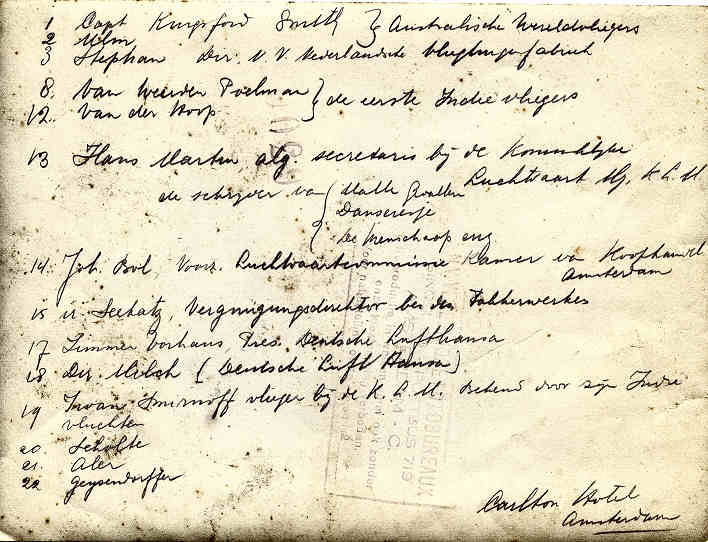 1 Capt Kingsford Smith } Australische Wereldvliegers
2 Ulm
3 Stephan Dir. N.V. Nederlandsche Vliegtuigenfabriek
8. Van Weerden Poelman } de eerste Indië vliegers
12. Van der Hoop
13 Hans Martin alg. secretaris bij de Koninklijke
Luchtvaart Mij. K.L.M.
de schrijver van { Malle Gevallen
Danseresje
De Menschaap enz
14. Joh. Bol, Voorz. Luchtvaartcommissie Kamer van Koophandel
Amsterdam
15 ir. Seekatz, Vergnügungsdirektor bei den Fokkerwerken
17 Zimmer Vorhaus Pres. Deutsche Lufthansa
18. Dir. Milch (Deutsche Luft Hansa)
19 Iwan Smirnoff vlieger bij de K.L.M. Bekend door zijn Indië
vluchten
20 Scholte
21. Aler
22 Geysendorffer
Carlton Hotel
Amsterdam